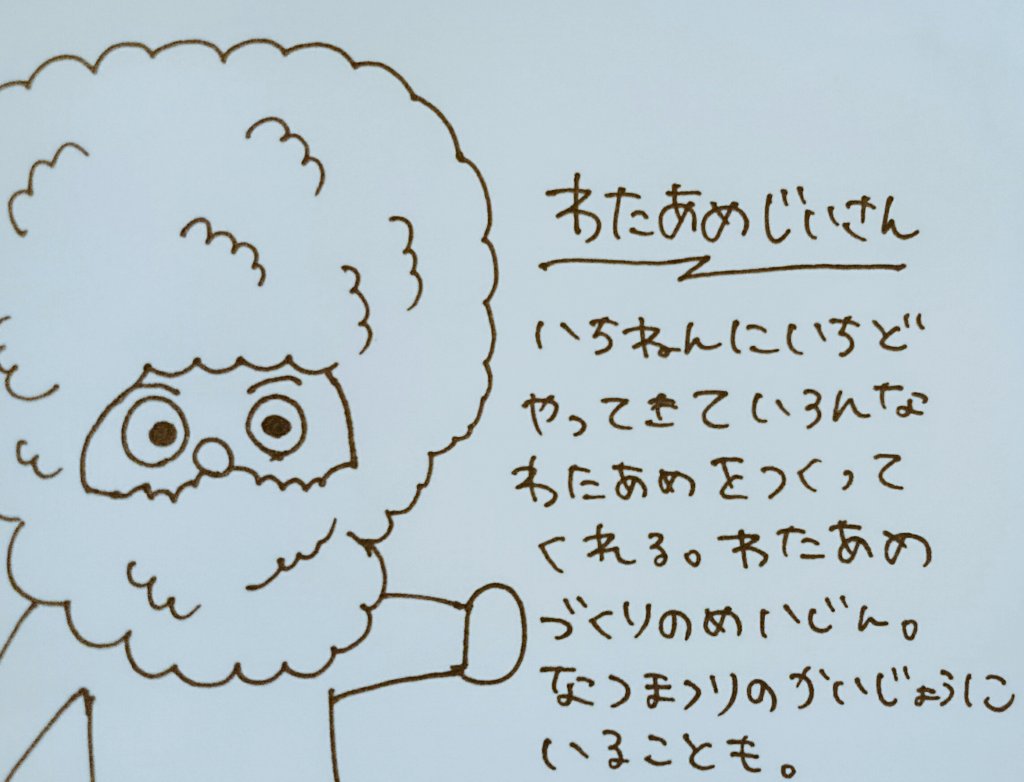 わたあめじいさん
いちねんにいちど
やってきていろんな
わたあめをつくって
くれる。わたあめ
づくりのめいじん。
なつまつりのかいじょうに
いることも。